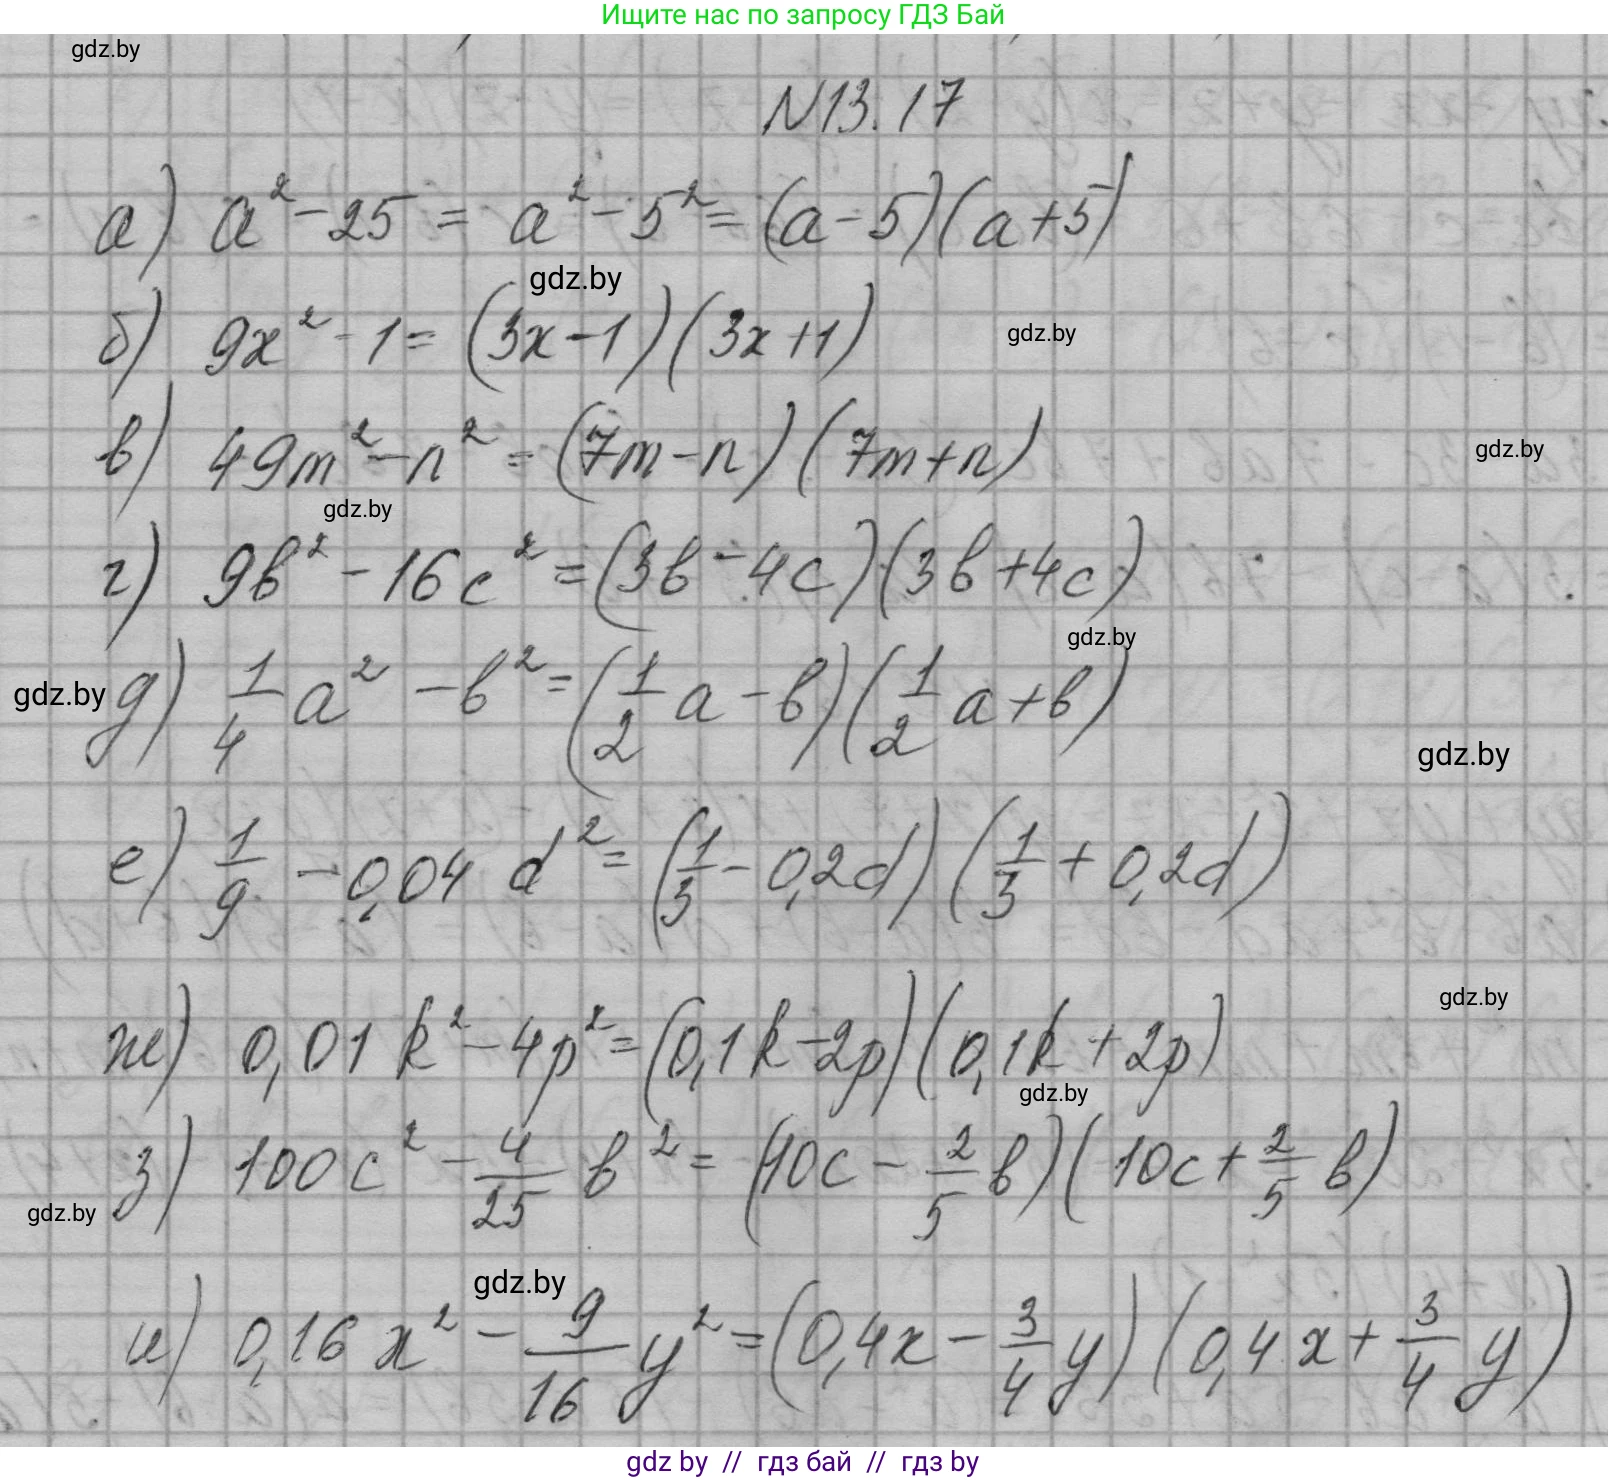 Ищите нас по запросу ГДЗ Бай
gdz.by
N13.17
а) a² - 25 = a² - 5² = (a - 5)(a + 5)
gdz.by
б) 9x² - 1 = (3x - 1)(3x + 1)
gdz.by
в) 49m² - n² = (7m - n)(7m + n)
gdz.by
gdz.by
г) 9b² - 16c² = (3b - 4c)(3b + 4c)
gdz.by
gdz.by
д) 1/4 a² - b² = (1/2 a - b)(1/2 a + b)
gdz.by
е) 1/9 - 0,04 d² = (1/3 - 0,2d)(1/3 + 0,2d)
gdz.by
ж) 0,01 k² - 4p² = (0,1k - 2p)(0,1k + 2p)
gdz.by
з) 100c² - 4/25 b² = (10c - 2/5 b)(10c + 2/5 b)
gdz.by
gdz.by
и) 0,16 x² - 9/16 y² = (0,4x - 3/4 y)(0,4x + 3/4 y)
gdz by // гдз бай // гдз by